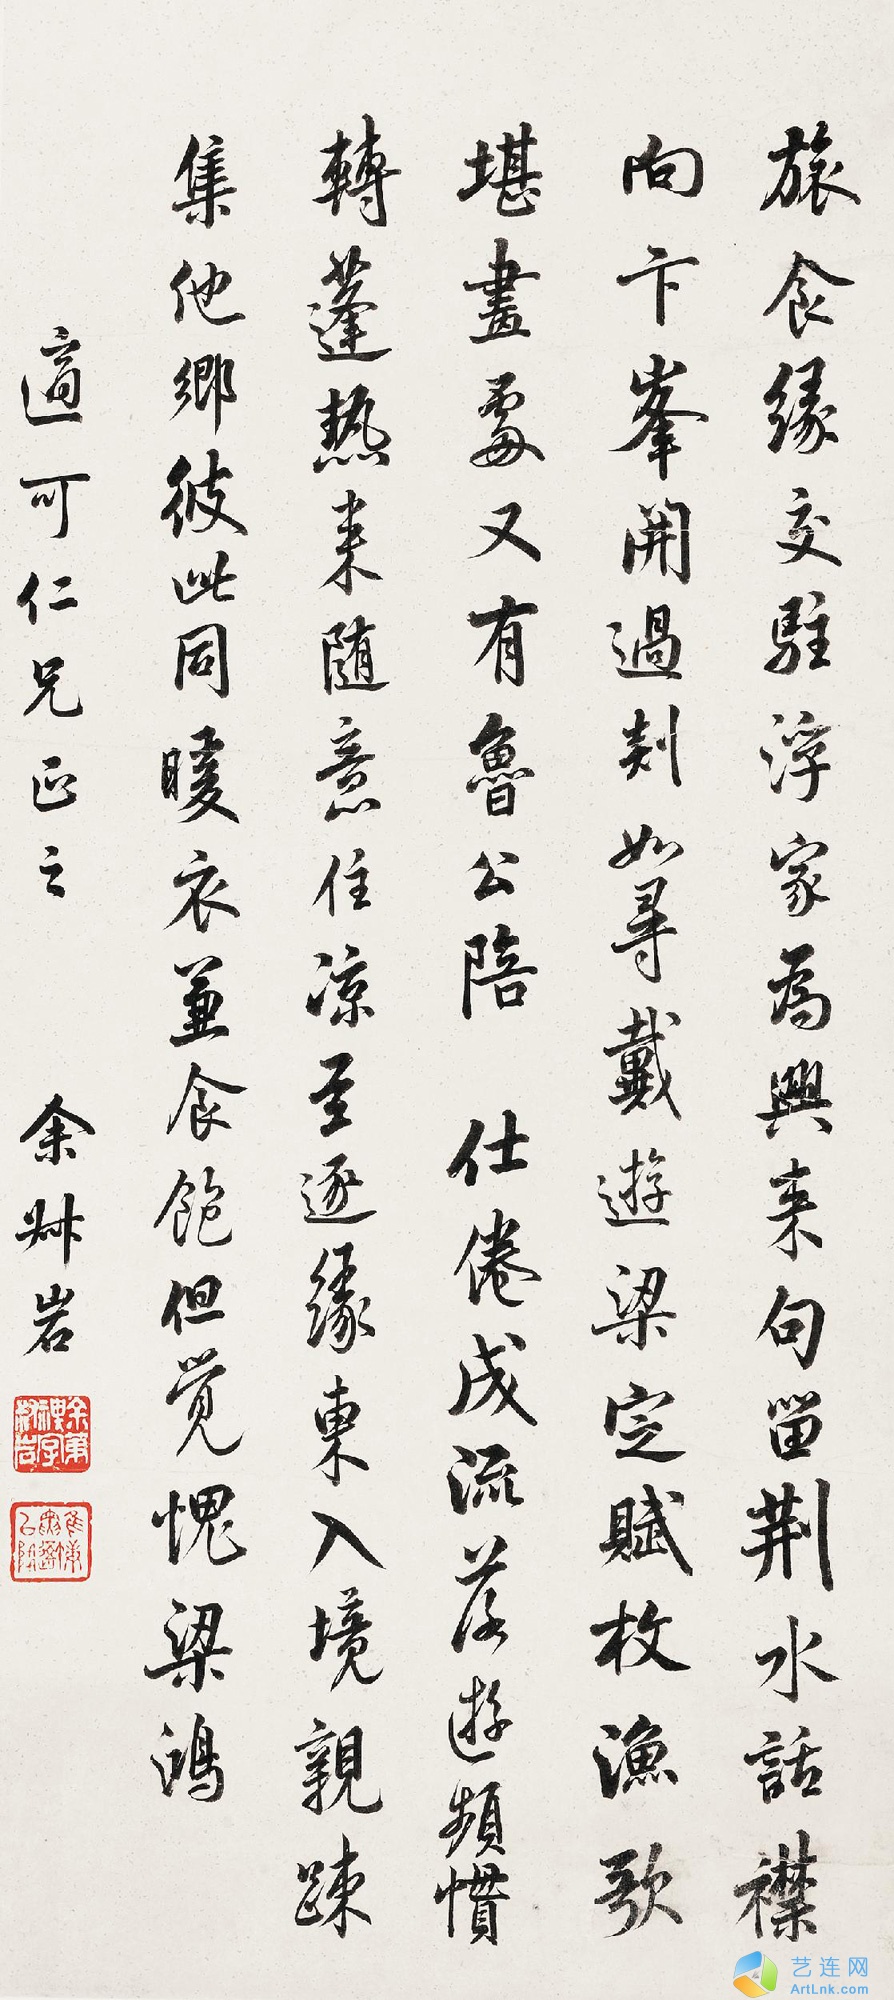 旅食緣交駐浮家為興来句留荆水話襟
向卞峯開過剡如尋戴遊梁定賦枚漁歌
堪畫處又有魯公陪 仕倦成流落遊頻慣
轉蓬熱来随意住凉至逐緣東入境親疎
集他鄉彼此同暖衣兼食飽但覺愧梁鴻
適可仁兄正之 余叔岩
艺连网
ArtLnk.com